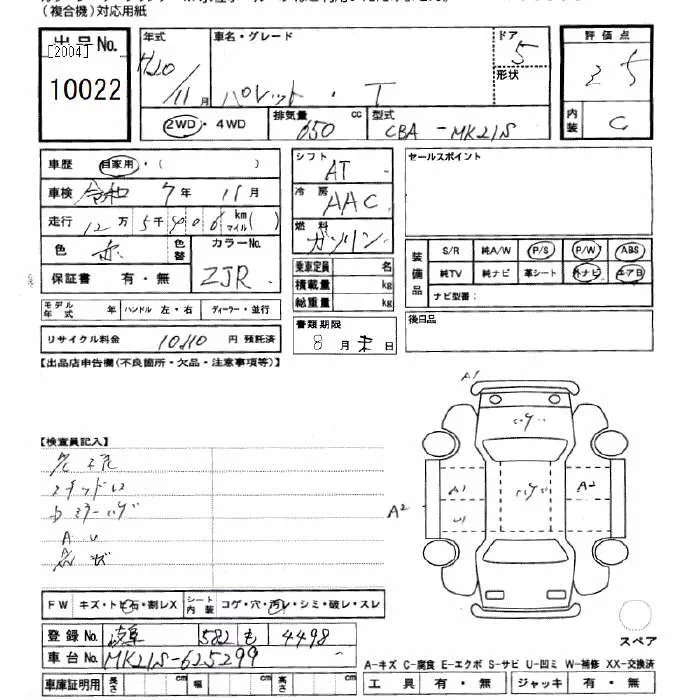 （複合機）対応用紙
出品No. [2004] 10022
年式 H20/11月 車名・グレード パレット・T ドア 5 形状
2WD・4WD 排気量 650 cc 型式 CBA-MK21S
評価点 3 5
内装 C
車歴 自家用・（ ）
車検 令和 7年 11月
走行 12万5千406 km マイル( )
色 赤 色替 カラーNo. ZJR
保証書 有・無
モデル年式 年 ハンドル 左・右 ディーラー・並行
リサイクル料金 10,110 円 預託済
シフト AT
冷房 AAC
燃料 ガソリン
乗車定員 名
積載量 kg
総重量 kg
書類期限
8月末日
セールスポイント
装備品 S/R 純A/W P/S P/W ABS
純TV 純ナビ 革シート 外ナビ エアB
ナビ型番：
後日品
【出品店申告欄（不良箇所・欠品・注意事項等）】
【検査員記入】
スタッドレス
A U
A1
A1
A2
U1
A2
FW キズ・トビ石・割レX シート内装 コゲ・穴・汚レ・シミ・破レ・スレ
登録No. 582 も 4498
車台No. MK21S-625299
車庫証明用 長さ cm 幅 cm 高さ cm
スペア
A-キズ C-腐食 E-エクボ S-サビ U-凹ミ W-補修 XX-交換済
工具 有・無 ジャッキ 有・無